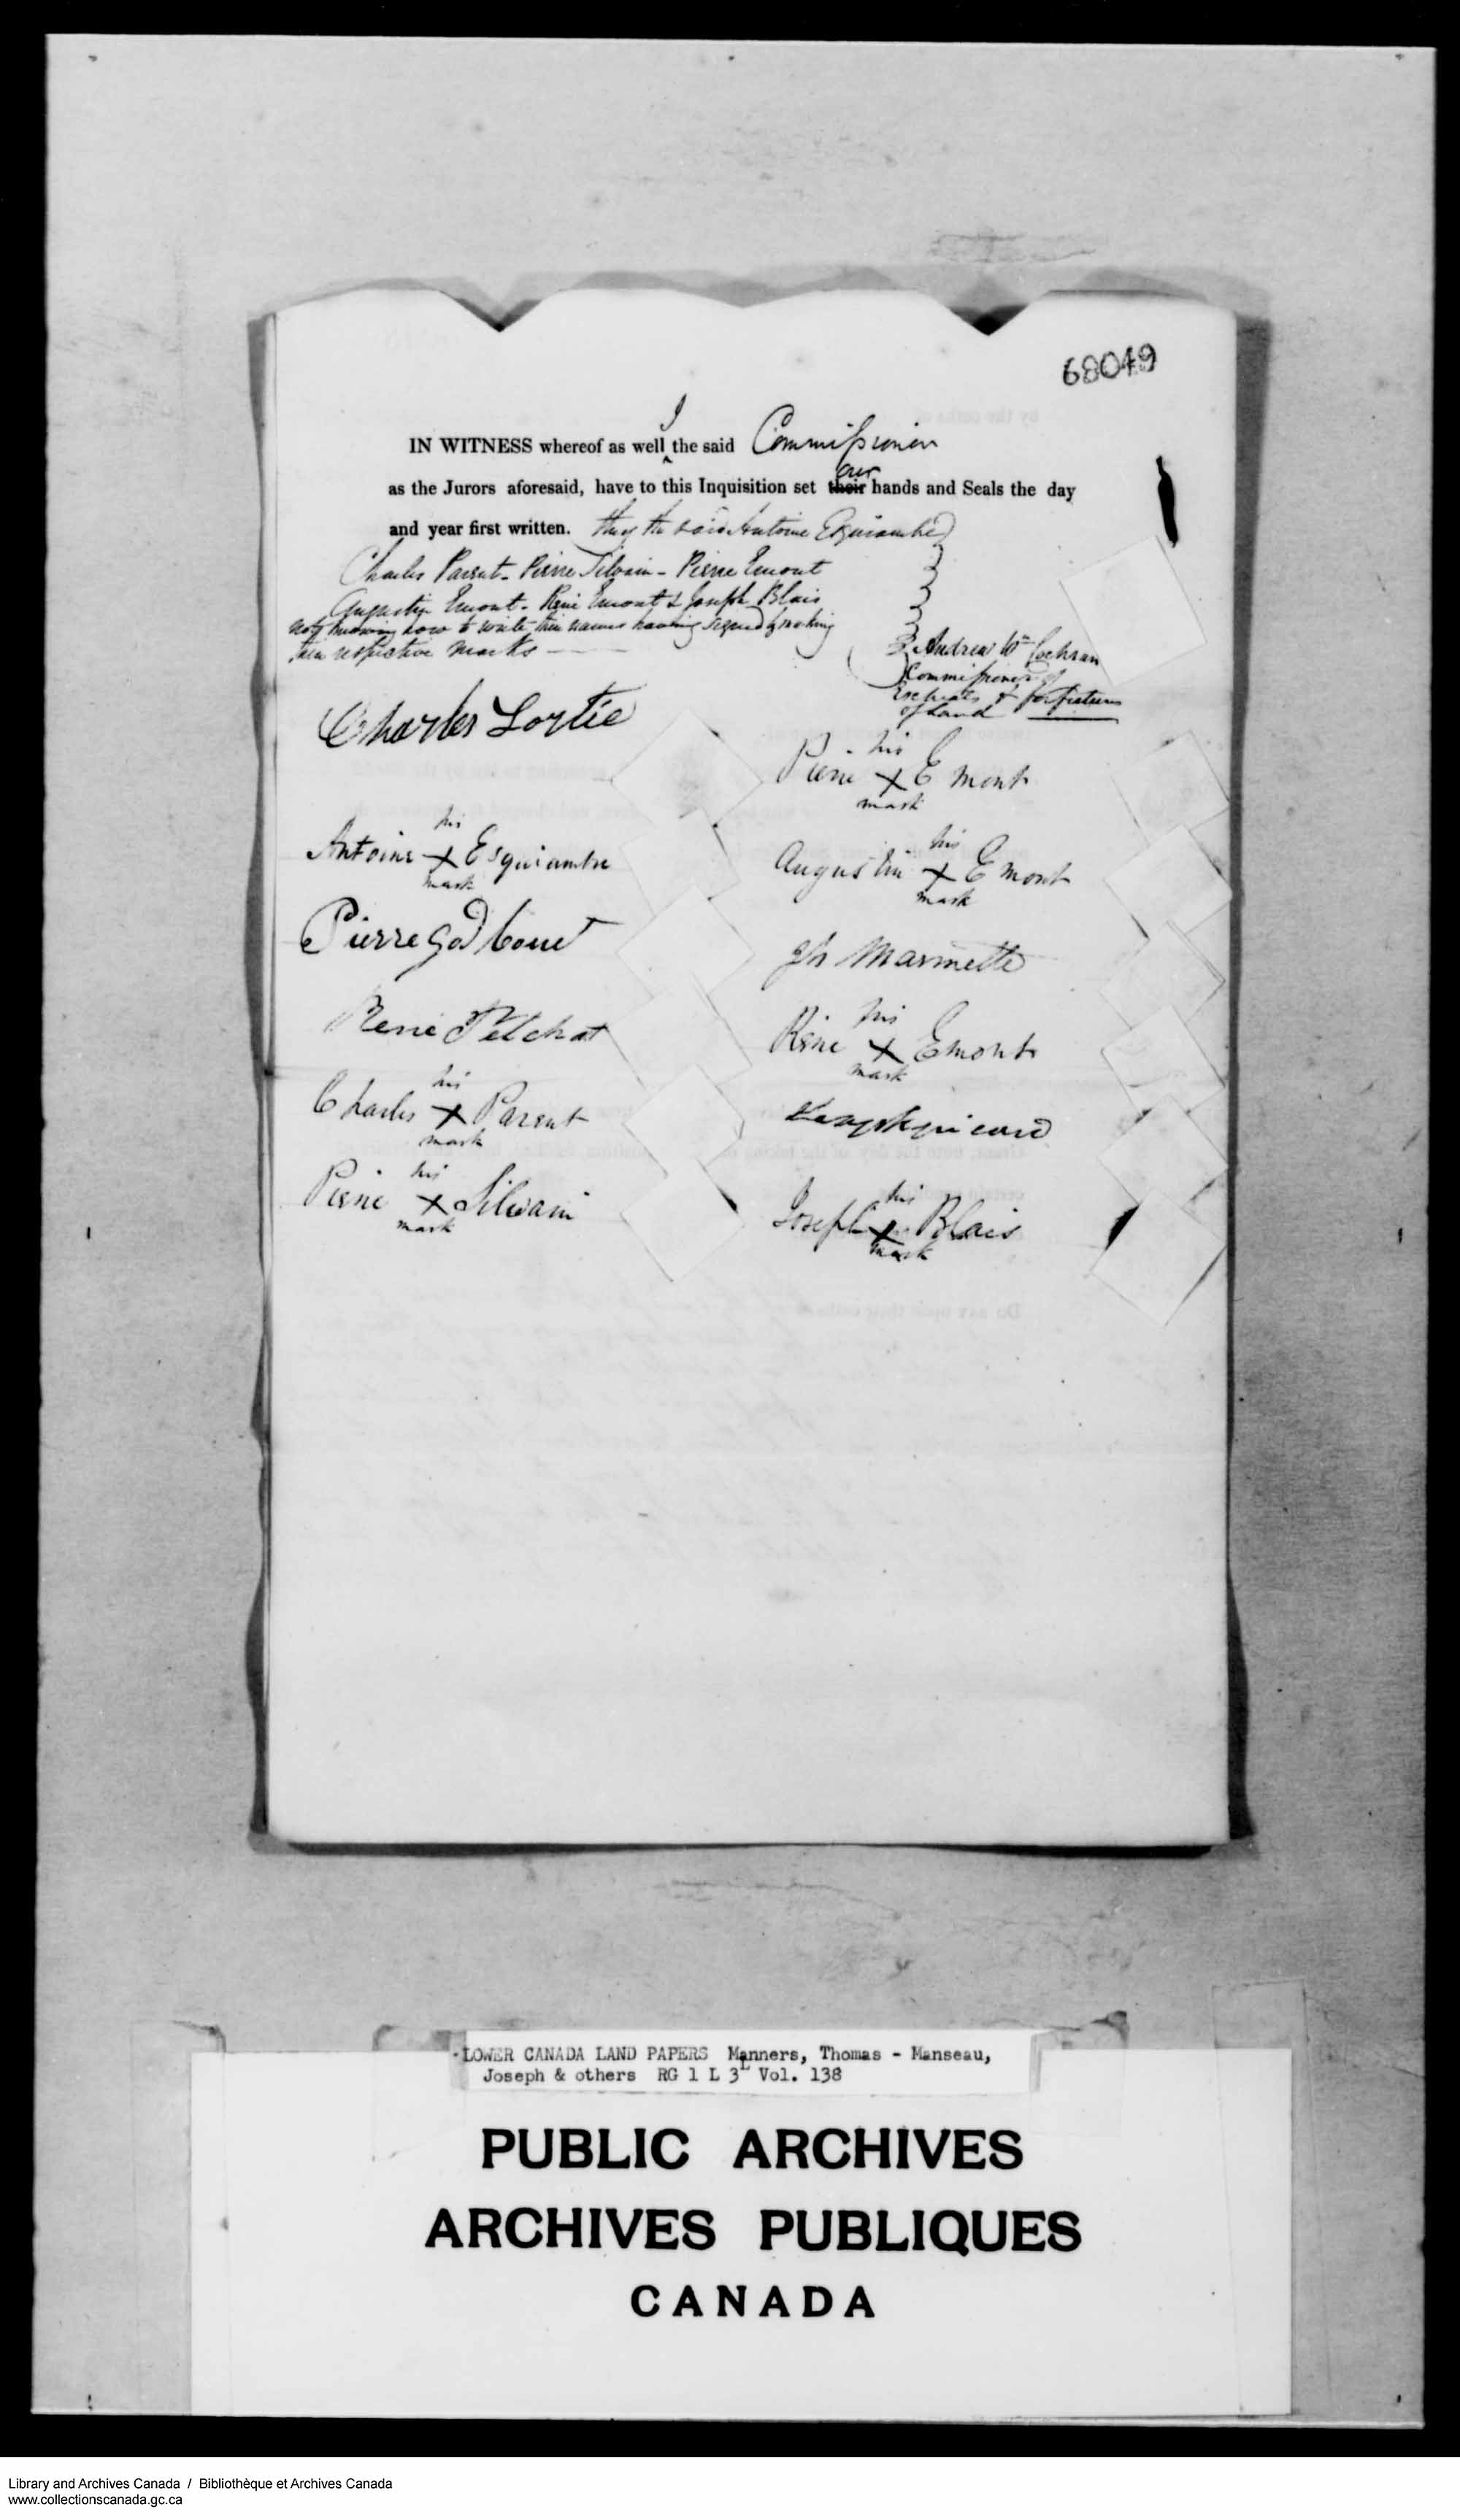 68049
I
IN WITNESS whereof as well ‸ the said Commissioner
our
as the Jurors aforesaid, have to this Inquisition set their hands and Seals the day
and year first written. they the said Antoine Esquiambre
Charles Parent - Pierre Silvain - Pierre Emont
Augustin Emont - Réné Emont & Joseph Blais
not knowing how to write their names having signed by making
their respective marks
Andrew Wm Cochran
Commissioner of
Escheats & forfeitures
of Land
Charles Lortie
his
Antoine X Esquiambre
mark
Pierre godbout
René Pelchat
his
Charles X Parent
mark
his
Pierre X Silvain
mark
his
Pierre X Emont
mark
his
Augustin X Emont
mark
Marmette
his
Réné X Emont
mark
picard
his
Joseph X Blais
mark
LOWER CANADA LAND PAPERS Manners, Thomas - Manseau,
Joseph & others RG 1 L 3L Vol. 138
PUBLIC ARCHIVES
ARCHIVES PUBLIQUES
CANADA
Library and Archives Canada / Bibliothèque et Archives Canada
www.collectionscanada.gc.ca